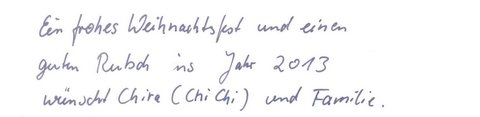 Ein frohes Weihnachtsfest und einen
guten Rutsch ins Jahr 2013
wünscht Chira (Chi Chi) und Familie.